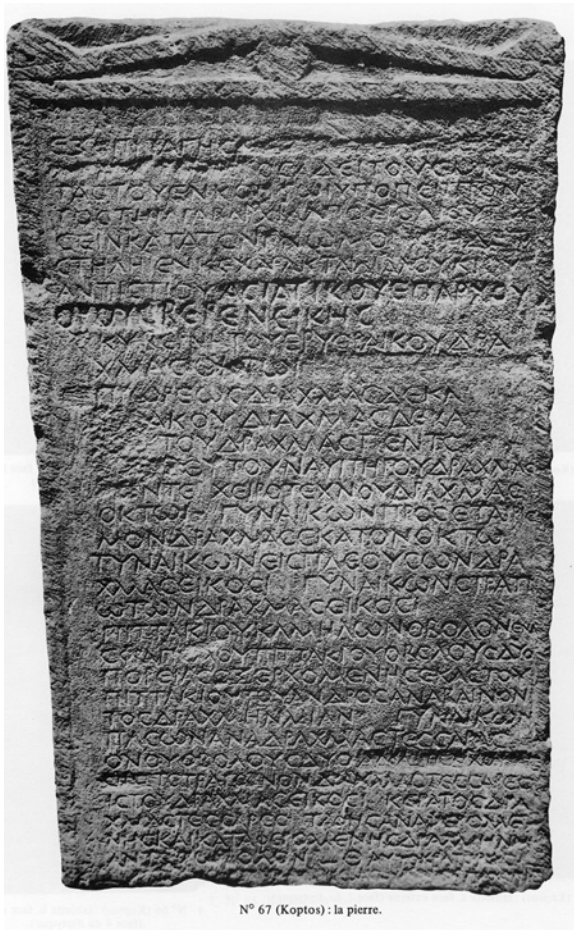 ΕΞ ΕΠΙΤΑΓΗΣ
ΟΣΑ ΔΕΙ ΤΟΥΣ ΜΙΣΘΩ
ΤΑΣ ΤΟΥ ΕΝ ΚΟΠΤΩΙ ΥΠΟΠΕΙΠΤΟΝ
ΤΟΣ ΤΗΙ ΑΡΑΒΑΡΧΙΑΙ ΑΠΟΣΤΟΛΙΟΥ
ΣΕΙΝ ΚΑΤΑ ΤΟΝ ΓΝΩΜΟΝΑ
ΣΤΗΛΗΙ ΕΝΚΕΧΑΡΑΚΤΑΙ ΔΙΑ ΛΟΥΚΙΟΥ
ΑΝΤΙΣΤΙΟΥ ΑΣΙΑΤΙΚΟΥ ΕΠΑΡΧΟΥ
ΟΡΟΥΣ ΒΕΡΕΝΕΙΚΗΣ
ΚΥΒΕΡΝΗΤΟΥ ΕΡΥΘΡΑΙΚΟΥ ΔΡΑ
ΧΜΑΣ ΟΚΤΩΙ
ΠΡΩΡΕΩΣ ΔΡΑΧΜΑΣ ΔΕΚΑ
ΑΚΟΥ ΔΡΑΧΜΑΣ ΔΕΚΑ
ΤΟΥ ΔΡΑΧΜΑΣ ΠΕΝΤΕ
ΠΕΥΤΟΥ ΝΑΥΠΗΓΟΥ ΔΡΑΧΜΑΣ
ΠΕΝΤΕ ΧΕΙΡΟΤΕΧΝΟΥ ΔΡΑΧΜΑΣ
ΟΚΤΩΙ ΓΥΝΑΙΚΩΝ ΠΡΟΣ ΕΤΑΙΡΙΣ
ΜΟΝ ΔΡΑΧΜΑΣ ΕΚΑΤΟΝ ΟΚΤΩ
ΓΥΝΑΙΚΩΝ ΕΙΣΠΛΕΟΥΣΩΝ ΔΡΑ
ΧΜΑΣ ΕΙΚΟΣΙ ΓΥΝΑΙΚΩΝ ΣΤΡΑΤΙ
ΩΤΩΝ ΔΡΑΧΜΑΣ ΕΙΚΟΣΙ
ΠΙΤΤΑΚΙΟΥ ΚΑΜΗΛΩΝ ΟΒΟΛΟΝ ΕΝΑ
ΣΦΡΑΓΙΣΜΟΥ ΠΙΤΤΑΚΙΟΥ ΟΒΟΛΟΥΣ ΔΥΟ
ΠΟΡΕΙΑΣ ΕΞΕΡΧΟΜΕΝΗΣ ΕΚΑΣΤΟΥ
ΠΙΤΤΑΚΙΟΥ ΤΟΥ ΑΝΔΡΟΣ ΑΝΑΒΑΙΝΟΝ
ΤΟΣ ΔΡΑΧΜΗΝ ΜΙΑΝ ΓΥΝΑΙΚΩΝ
ΠΑΣΩΝ ΑΝΑ ΔΡΑΧΜΑΣ ΤΕΣΣΑΡΑΣ
ΟΝΟΥ ΟΒΟΛΟΥΣ ΔΥΟ ΑΜΑΞΗΣ ΕΧΟΥ
ΣΗΣ ΤΕΤΡΑΓΩΝΟΝ ΔΡΑΧΜΑΣ ΤΕΣΣΑΡΕΣ
ΙΣΤΟΥ ΔΡΑΧΜΑΣ ΕΙΚΟΣΙ ΚΕΡΑΤΟΣ ΔΡΑ
ΧΜΑΣ ΤΕΣΣΑΡΕΣ ΤΑΦΗΣ ΑΝΑΦΕΡΟΜΕ
ΝΗΣ ΚΑΙ ΚΑΤΑΦΕΡΟΜΕΝΗΣ ΔΡΑΧΜΗΝ ΜΙ
ΑΝ ΤΕΤΡΩΒΟΛΟΝ
N° 67 (Koptos) : la pierre.